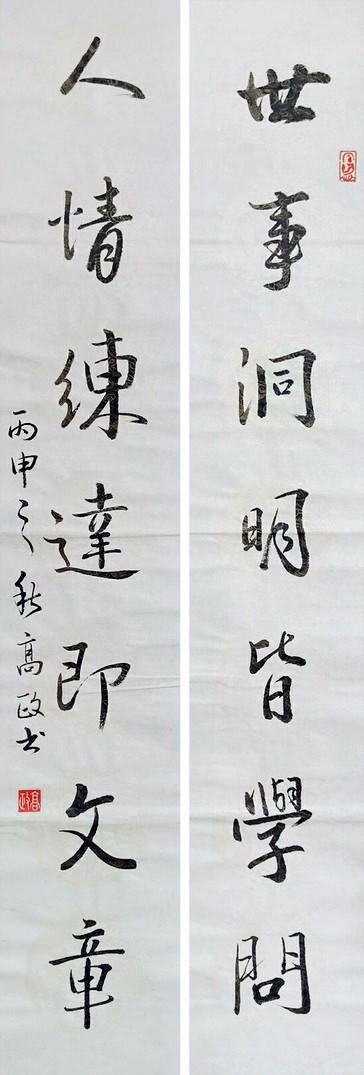 世事洞明皆學問
人情練達即文章
丙申之秋高政书
高政